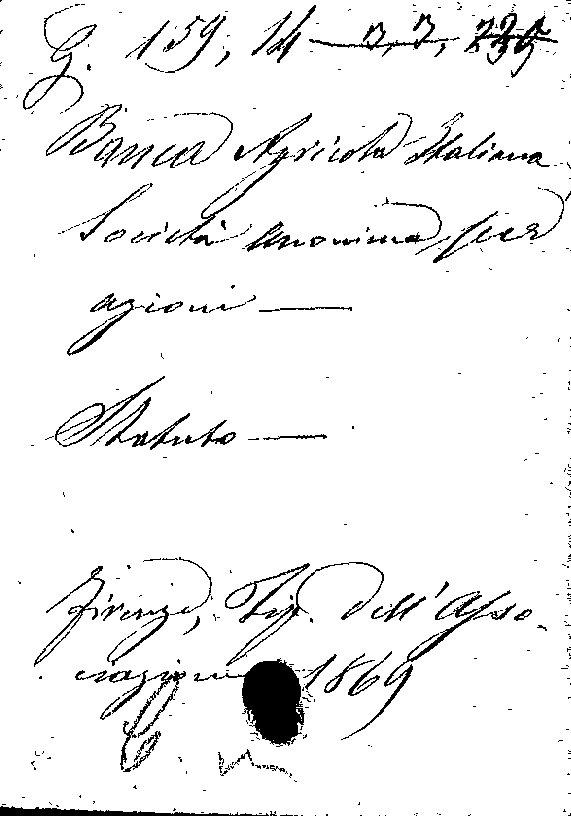 G. 159, 14 3, 3, 235
Banca Agricola Italiana
Società anonima per
azioni —
Statuto —
Firenze, Tip. dell' Asso-
ciazione 1869